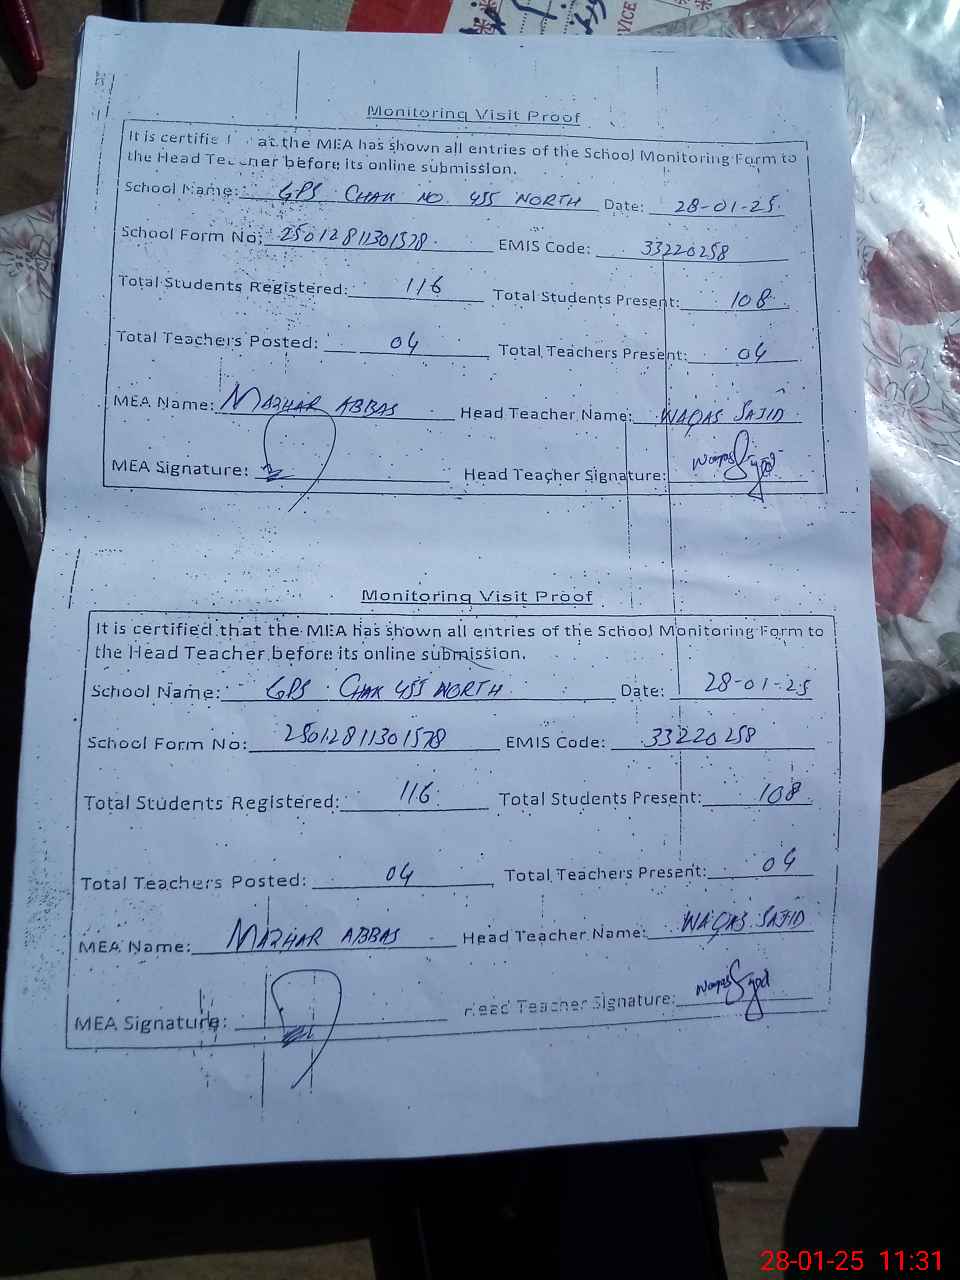 VICE
Monitoring Visit Proof
It is certifie at the MEA has shown all entries of the School Monitoring Form to
the Head Teacher before its online submission.
School Name: GPS CHAK NO. 455 NORTH Date: 28-01-25
School Form No: 25012811301578 EMIS Code: 33220258
Total Students Registered: 116 Total Students Present: 108
Total Teachers Posted: 04 Total Teachers Present: 04
MEA Name: MAZHAR ABBAS Head Teacher Name: WAQAS SAJID
MEA Signature: Head Teacher Signature: Waqas Sajid
Monitoring Visit Proof
It is certified that the MEA has shown all entries of the School Monitoring Form to
the Head Teacher before its online submission.
School Name: GPS CHAK 455 NORTH Date: 28-01-25
School Form No: 25012811301578 EMIS Code: 33220258
Total Students Registered: 116 Total Students Present: 108
Total Teachers Posted: 04 Total Teachers Present: 04
MEA Name: MAZHAR ABBAS Head Teacher Name: WAQAS SAJID
MEA Signature: Head Teacher Signature: Waqas Sajid
28-01-25 11:31